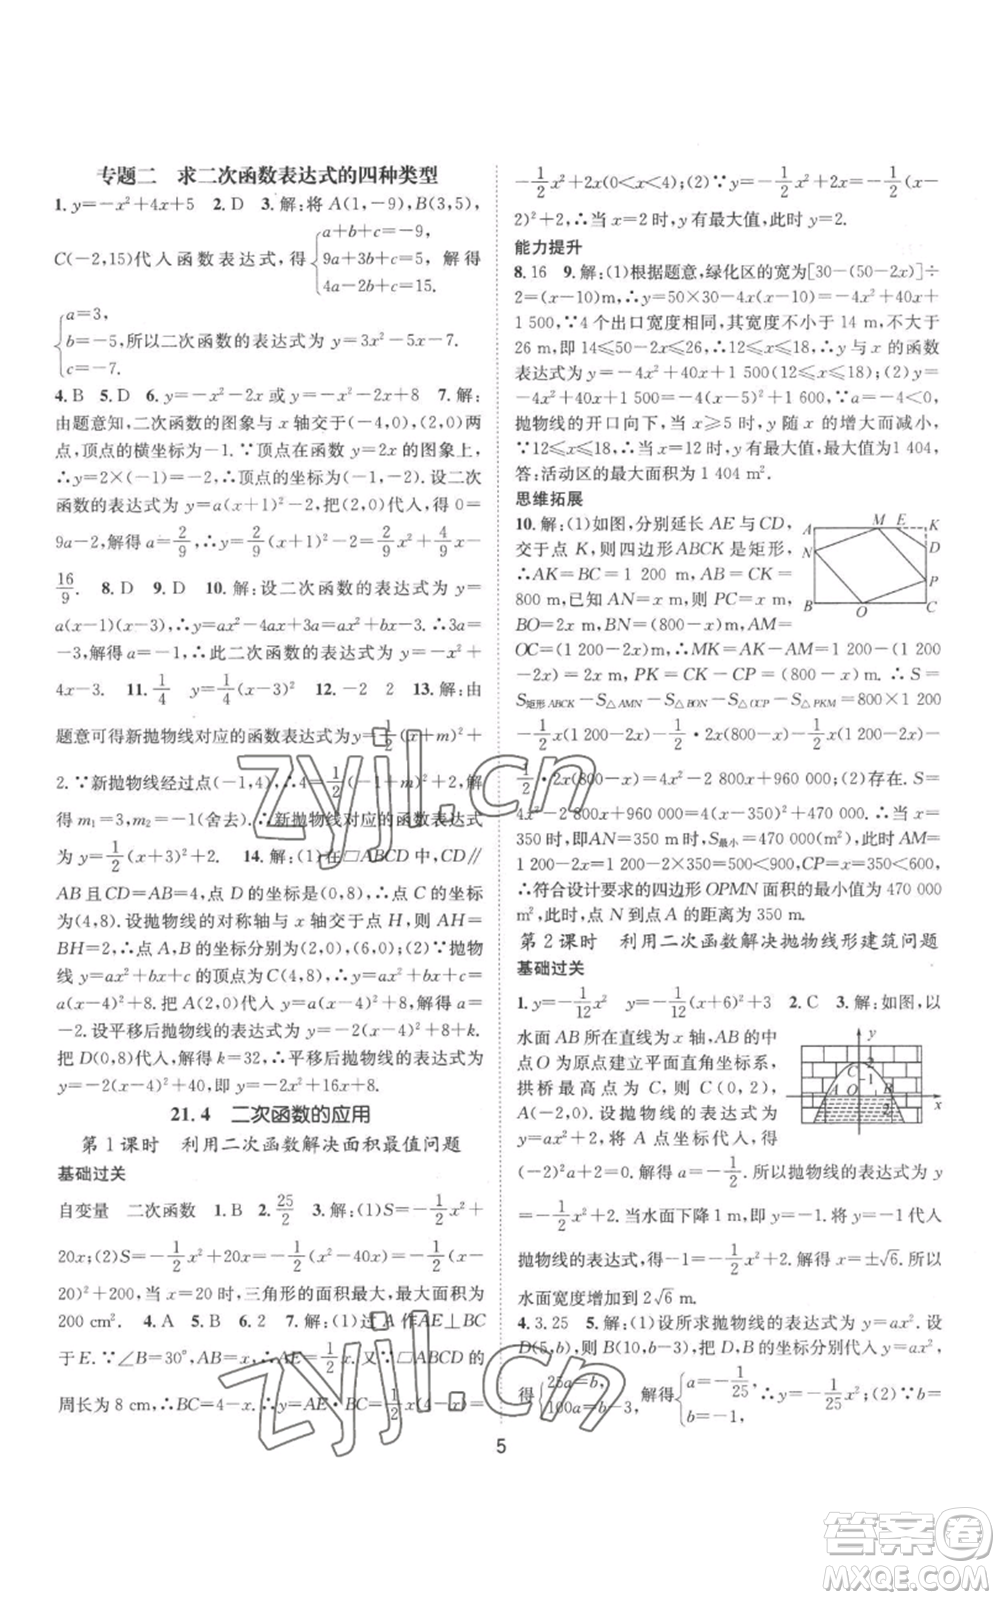 专题二 求二次函数表达式的四种类型
1. y=-x²+4x+5 2. D 3. 解:将 A(1,-9),B(3,5),
C(-2,15)代入函数表达式,得 {a+b+c=-9, 9a+3b+c=5, 4a-2b+c=15. 解得
{a=3, b=-5, c=-7. 所以二次函数的表达式为 y=3x²-5x-7.
4. B 5. D 6. y=-x²-2x 或 y=-x²-2x+8 7. 解:
由题意知,二次函数的图象与 x 轴交于(-4,0),(2,0)两
点,顶点的横坐标为-1.∵顶点在函数 y=2x 的图象上,
∴y=2×(-1)=-2.∴顶点的坐标为(-1,-2).设二次
函数的表达式为 y=a(x+1)²-2,把(2,0)代入,得 0=
9a-2,解得 a=2/9.∴y=2/9(x+1)²-2=2/9x²+4/9x-
16/9. 8. D 9. D 10. 解:设二次函数的表达式为 y=
a(x-1)(x-3),∴y=ax²-4ax+3a.∴3a=
-3,解得 a=-1,∴此二次函数的表达式为 y=-x²+
4x-3. 11. 1/4 y=1/4(x-3)² 12. -2 2 13. 解:由
题意可得新抛物线对应的函数表达式为 y=1/2(x+m)²+
2.∵新抛物线经过点(-1,4),∴4=1/2(-1+m)²+2,解
得 m₁=3,m₂=-1(舍去).∴新抛物线对应的函数表达式
为 y=1/2(x+3)²+2. 14. 解:(1)在□ABCD 中,CD∥
AB 且 CD=AB=4,点 D 的坐标是(0,8),∴点 C 的坐标为
(4,8).设抛物线的对称轴与 x 轴交于点 H,则 AH=
BH=2,∴点 A,B 的坐标分别为(2,0),(6,0);(2)∵抛物
线 y=ax²+bx+c 的顶点为C(4,8),∴可设抛物线的表
达式为 y=a(x-4)²+8.把 A(2,0)代入,解得 a=
-2.设平移后抛物线的表达式为 y=-2(x-4)²+8+k.
把 D(0,8)代入,解得 k=32,∴平移后抛物线的表达式为
y=-2(x-4)²+40,即 y=-2x²+16x+8.
21.4 二次函数的应用
第 1 课时 利用二次函数解决面积最值问题
基础过关
自变量 二次函数 1. B 2. 25/2 3. 解:(1)S=-1/2x²+
20x;(2)S=-1/2x²+20x=-1/2(x²-40x)=-1/2(x-
20)²+200,∴当 x=20 时,三角形的面积最大,最大面积为
200 cm². 4. A 5. B 6. 2 7. 解:(1)过 A 作 AE⊥BC
于 E.∵∠B=30°,AB=x,∴AE=1/2x.又∵□ABCD 的
周长为 8 cm,∴BC=4-x,∴y=AE·BC=1/2x(4-x)=
-1/2x²+2x(0<x<4);(2)∵y=-1/2x²+2x=-1/2(x-
2)²+2,∴当 x=2 时,y 有最大值,此时 y=2.
能力提升
8. 16 9. 解:(1)根据题意,绿化区的宽为[30-(50-2x)]÷
2=(x-10)m,∴y=50×30-4x(x-10)=-4x²+40x+
1 500,∵4 个出口宽度相同,其宽度不小于 14 m,不大于
26 m,即 14≤50-2x≤26,∴12≤x≤18,∴y 与 x 的函数
表达式为 y=-4x²+40x+1 500(12≤x≤18);(2)y=
-4x²+40x+1 500=-4(x-5)²+1 600,∵a=-4<0,
抛物线的开口向下,当 x>5 时,y 随 x 的增大而减小,
∵12≤x≤18,∴当 x=12 时,y 有最大值,最大值为 1 404,
答:活动区的最大面积为 1 404 m².
思维拓展
10. 解:(1)如图,分别延长 AE 与 CD,
交于点 K,则四边形ABCK 是矩形,
∴AK=BC=1 200 m,AB=CK=
800 m,已知 AN=x m,则 PC=x m,
BO=2x m,BN=(800-x)m,AM=
OC=(1 200-2x)m,∴MK=AK-AM=1 200-(1 200-
2x)=2x(m),PK=CK-CP=(800-x)m.∴S=
S矩形ABCK-S△AMN-S△BON-S△OCP-S△PKM=800×1 200
-1/2x(1 200-2x)-1/2·2x(800-x)-1/2x(1 200-2x)-
1/2·2x(800-x)=4x²-2 800x+960 000;(2)存在. S=
4x²-2 800x+960 000=4(x-350)²+470 000,∴当 x=
350 时,即AN=350 m,S最小=470 000(m²),此时 AM=
1 200-2x=1 200-2×350=500<900,CP=x=350<600,
∴符合设计要求的四边形 OPMN 面积的最小值为 470 000
m²,此时,点 N 到点 A 的距离为 350 m.
A
M
E
K
N
D
P
B
O
C
第 2 课时 利用二次函数解决抛物线形建筑问题
基础过关
1. y=-1/12x² y=-1/12(x+6)²+3 2. C 3. 解:如图,以
水面 AB 所在的直线为 x 轴,AB 的中
点 O 为原点建立平面直角坐标系,
拱桥最高点为 C,则点 C(0,2),
A(-2,0).可设抛物线的表达式为 y=
ax²+2,将点 A 代入表达式,得 a×
(-2)²+2=0.解得 a=-1/2.所以抛物线的表达式为 y
=-1/2x²+2.当水面下降 1 m,即 y=-1 时,将 y=-1 代入
抛物线的表达式,得-1=-1/2x²+2.解得 x=±√6.所以
水面宽度增加到 2√6 m.
y
2
C
1
A
O
B
2
x
4. 3.25 5. 解:(1)设所求抛物线的表达式为 y=ax².设
D(5,b),则 B(10,b-3),把 D,B 的坐标分别代入,
得 {25a=b, 100a=b-3, 解得 {a=-1/25, b=-1, ∴y=-1/25x²;(2)∵
5
zyjl.cn
zyjl.cn
答案圈
MXQE.COM